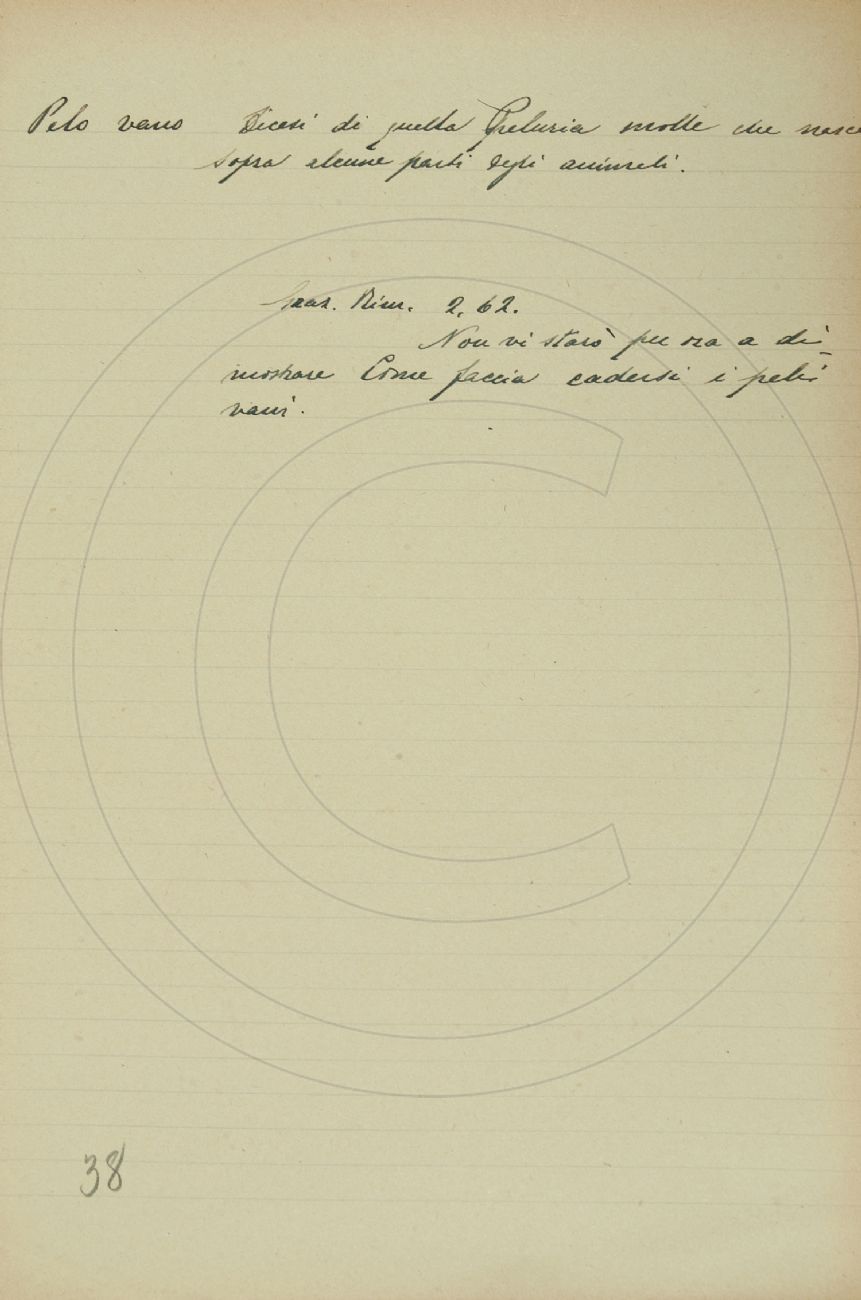 Pelo vano Dicesi di quella Peluria molle che nasce
sopra alcune parti degli animali.
Rim. 2, 62.
Non vi starò per ora a di-
mostrare Come faccia cadersi i peli
vani.
38